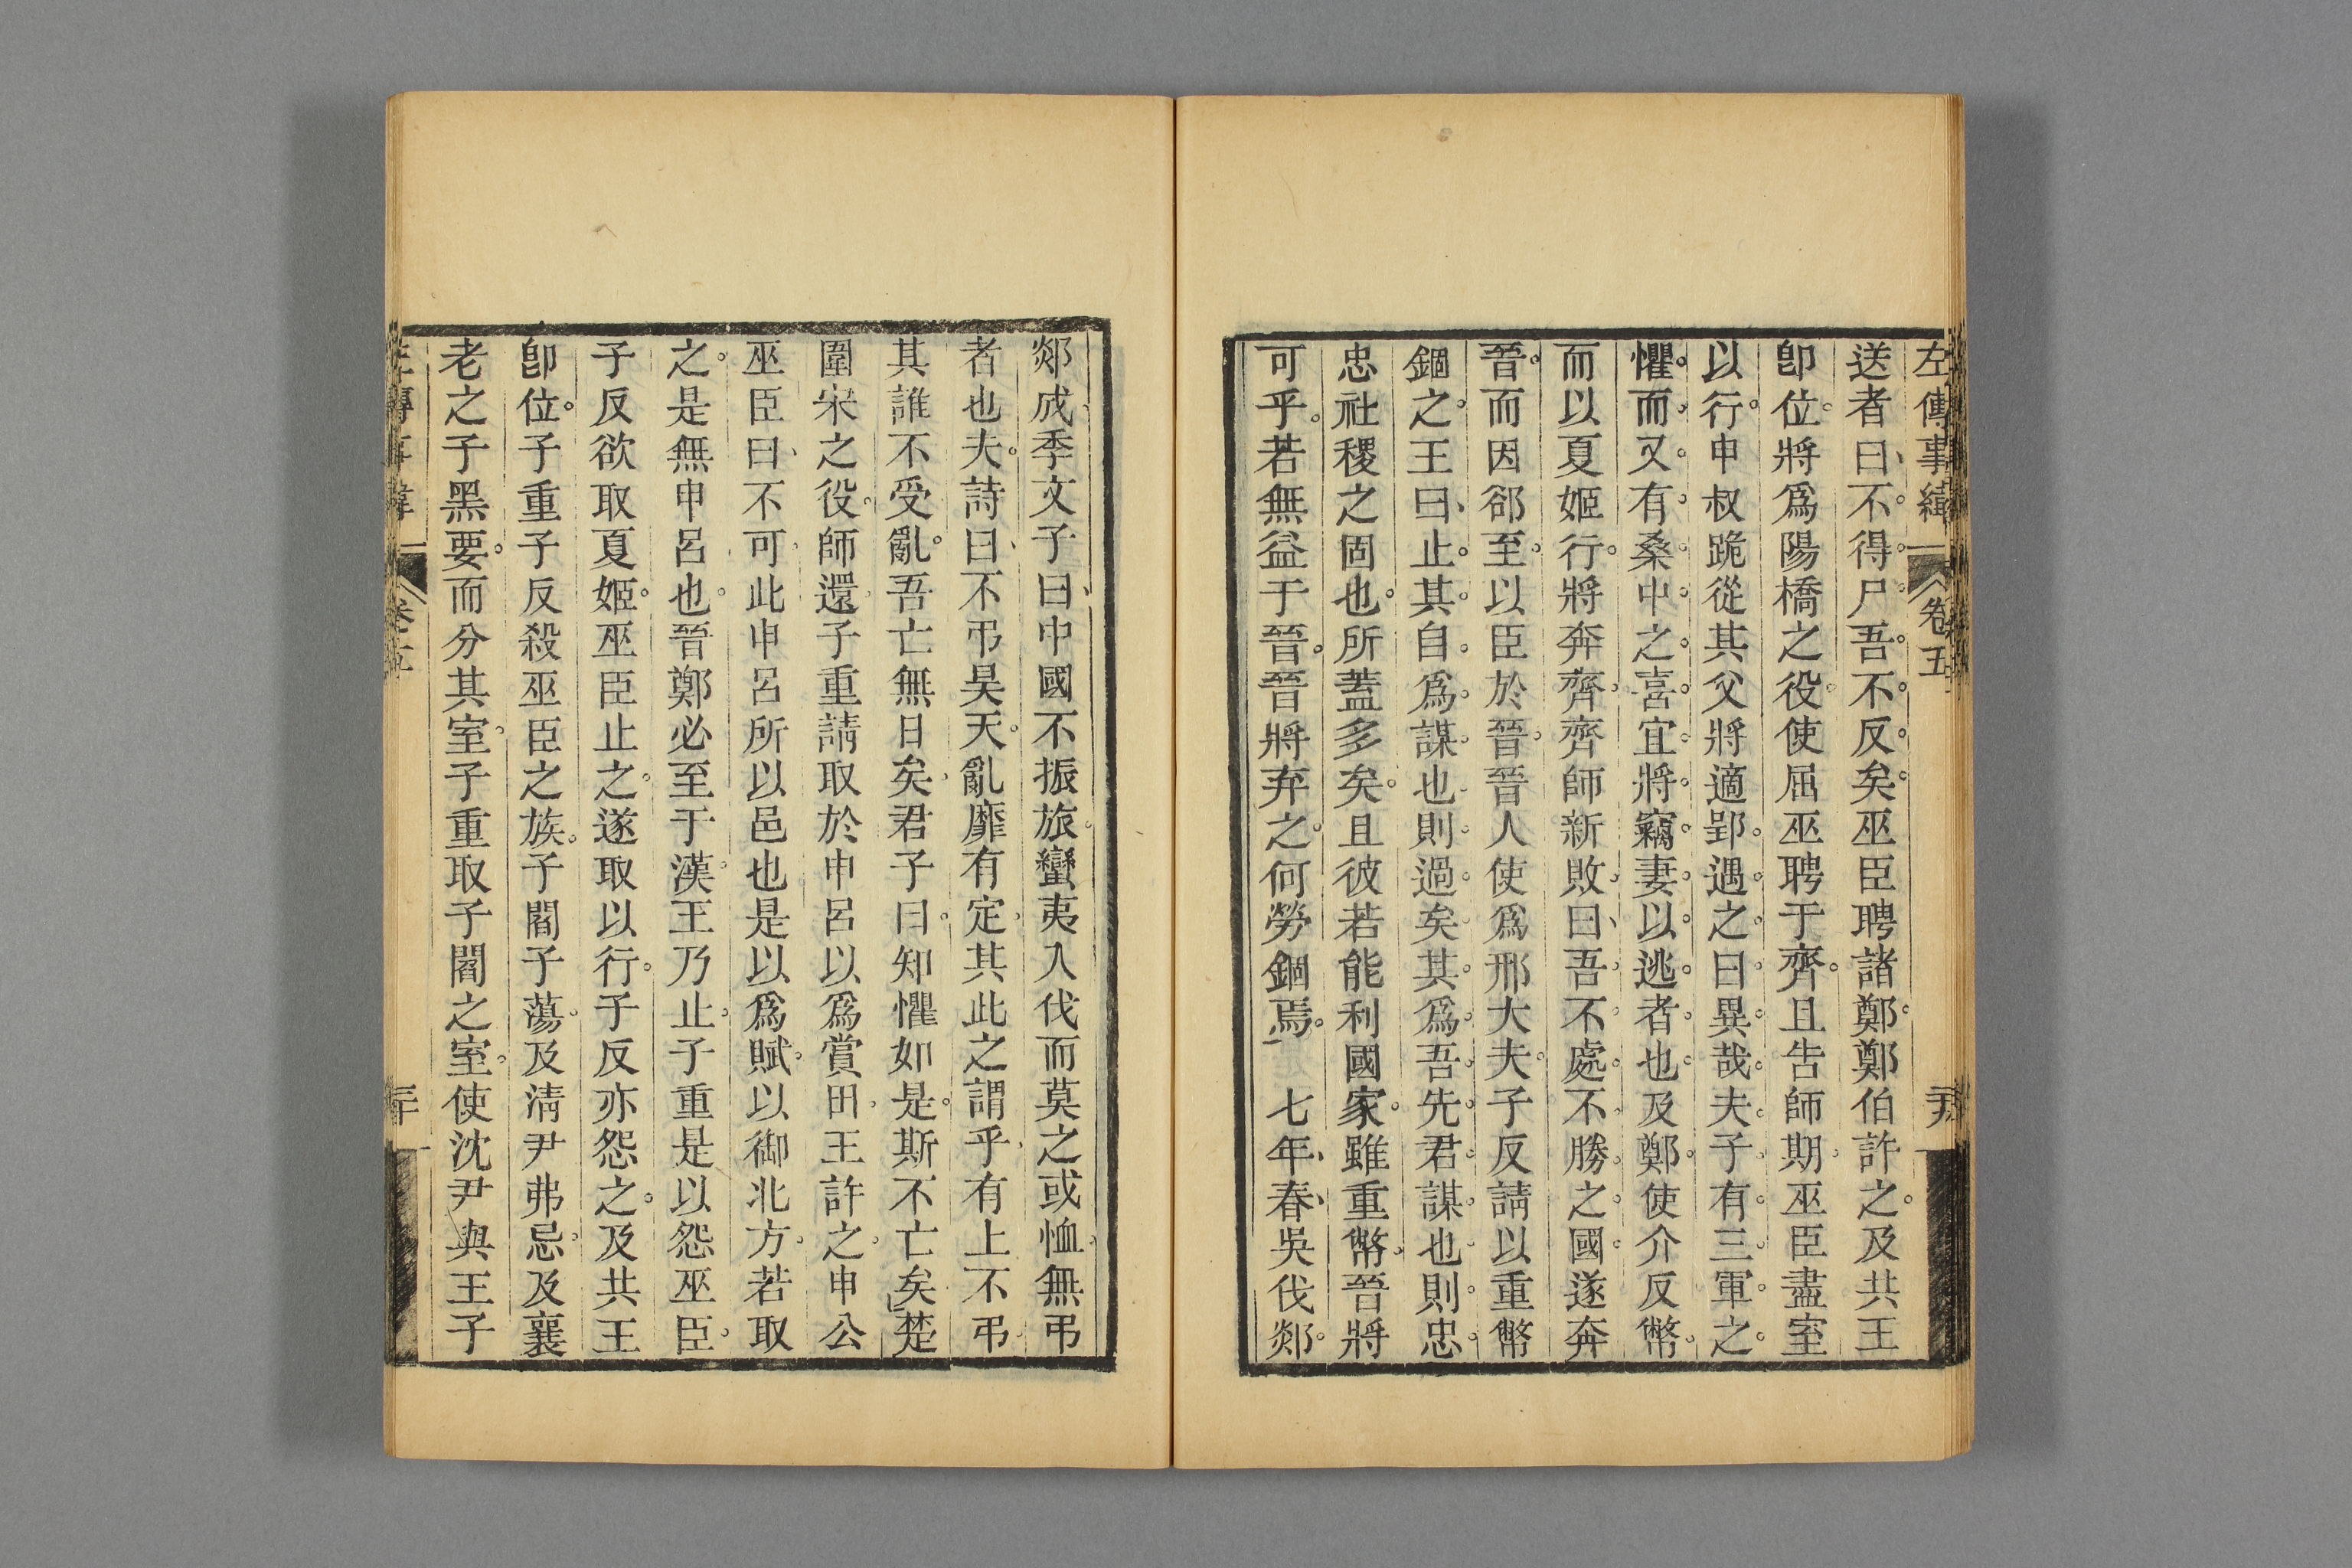 左傳事緯 卷五
送者曰不得尸吾不反矣巫臣聘諸鄭鄭伯許之及共王
卽位將爲陽橋之役使屈巫聘于齊且告師期巫臣盡室
以行申叔跪從其父將適郢遇之曰異哉夫子有三軍之
懼而又有桑中之喜宜將竊妻以逃者也及鄭使介反幣
而以夏姬行將奔齊齊師新敗曰吾不處不勝之國遂奔
晉而因郤至以臣於晉晉人使爲邢大夫子反請以重幣
錮之王曰止其自爲謀也則過矣其爲吾先君謀也則忠
忠社稷之固也所蓋多矣且彼若能利國家雖重幣晉將
可乎若無益于晉晉將弃之何勞錮焉 七年春吳伐郯
郯成季文子曰中國不振旅蠻夷入伐而莫之或恤無弔
者也夫詩曰不弔昊天亂靡有定其此之謂乎有上不弔
其誰不受亂吾亡無日矣君子曰知懼如是斯不亡矣楚
圍宋之役師還子重請取於申呂以爲賞田王許之申公
巫臣曰不可此申呂所以邑也是以爲賦以御北方若取
之是無申呂也晉鄭必至于漢王乃止子重是以怨巫臣
子反欲取夏姬巫臣止之遂取以行子反亦怨之及共王
卽位子重子反殺巫臣之族子閻子蕩及淸尹弗忌及襄
老之子黑要而分其室子重取子閻之室使沈尹與王子
左傳事緯 卷五